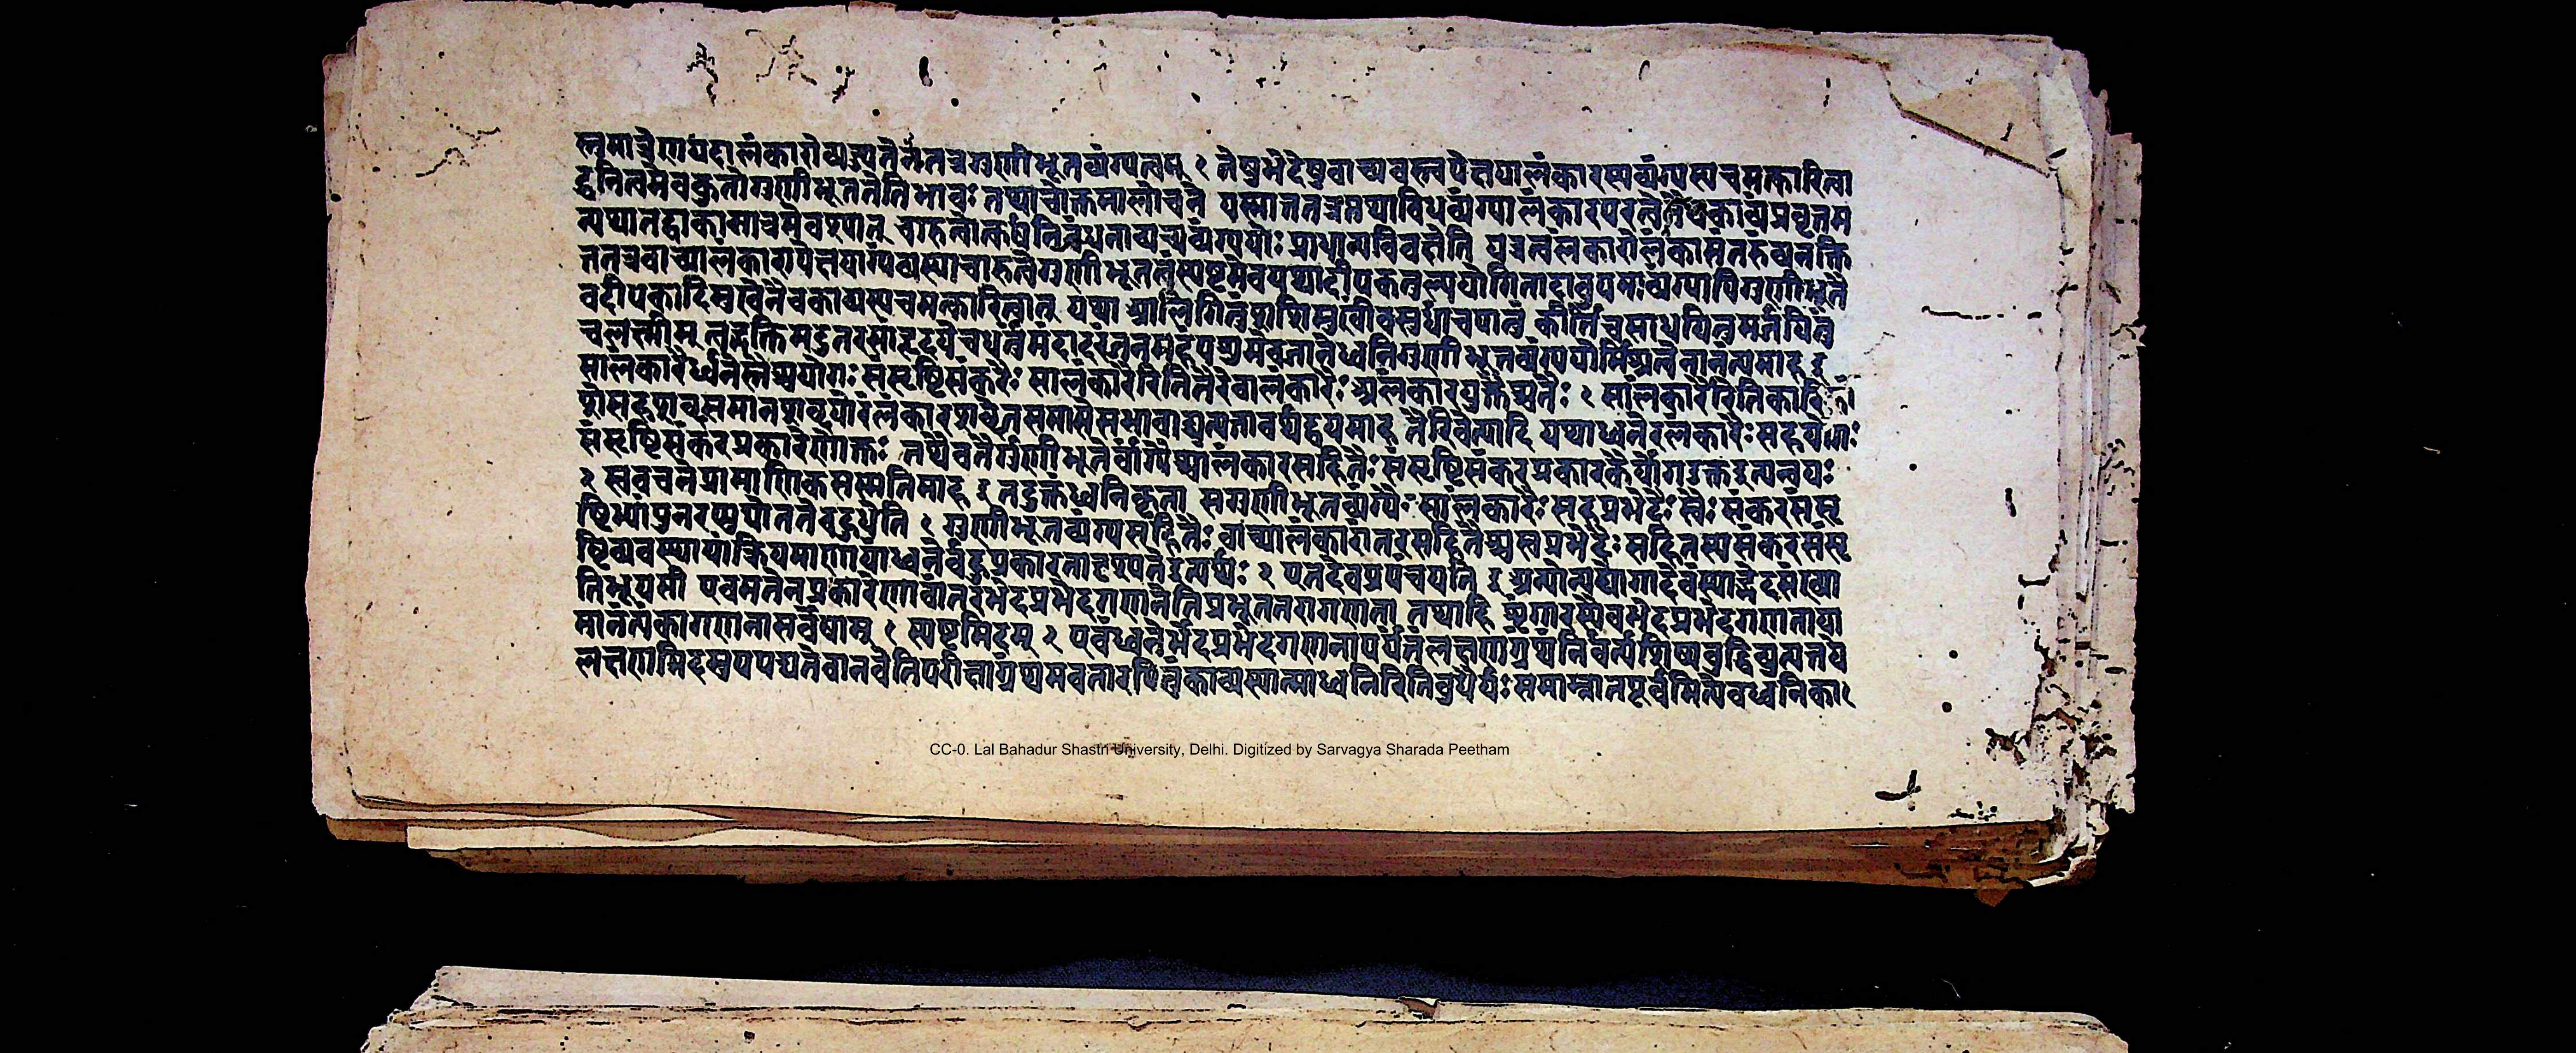 स्तुमात्रेणयदालंकारोव्यज्यतेनतत्रगुणीभूतव्यंग्यत्वम् १ तेषुभेदेषुवाच्यवस्त्वपेक्षयालंकारस्यव्यंग्यस्यचमत्कारित्वा
द्ध्वनित्वमेवकुतोगुणीभूततेतिभावः तथाचोक्तमालोचने यस्मात्तत्रतथाविधव्यंग्यालंकारपरत्वेनैवकाव्यंप्रवृत्तम
न्यथातद्वाक्यमात्रमेवस्यात् चारुत्वोत्कर्षनिबंधनावाच्यव्यंग्ययोः प्राधान्यविवक्षेति यत्रत्वलंकारेलंकारांतरव्यनक्ति
तत्रवाच्यालंकारापेक्षयाव्यंग्यस्याचारुत्वेगुणीभूतत्वंस्पष्टमेवयथादीपकतुल्ययोगितादावुपमाव्यंग्यापिगुणीभूतै
वदीपकादिमुखेनैवकाव्यस्यचमत्कारित्वात् यथा आलिंगितुंशशिमुखींचसुधांचपातुं कीर्तिंचसाधयितुमर्जयितुं
चलक्ष्मीम् त्वद्भक्तिमद्भुतरसांहृदयेचधर्तुंमंदादरंजनमहंपशुमेवजानेध्वनिगुणीभूतव्यंग्ययोर्मिश्रत्वेनानंत्यमाह ॥
सालंकारैर्ध्वनेस्तैश्चयोगः संसृष्टिसंकरैः सालंकारैरितितैरेवालंकारैः अलंकारयुक्तैश्चतैः १ सालंकारैरितिकारि
संसृष्टिसंकरप्रकारेणोक्तः तथैवतैर्गुणीभूतैर्व्यंग्यैश्चालंकारसहितैः संसृष्टिसंकरप्रकारकैर्योगउक्तइत्यन्वयः
२ स्ववचनेप्रामाणिकसम्मतिमाह ॥ तदुक्तंध्वनिकृता सगुणीभूतव्यंग्यैः सालंकारैः सहप्रभेदैः स्वैः संकरसंसृ
ष्टिभ्यांपुनरप्युद्योततेबहुधेति १ गुणीभूतव्यंग्यसहितैः वाच्यालंकारांतरसहितैश्चस्वप्रभेदैः सहितस्यसंकरसंसृ
ष्टिव्यवस्थायांक्रियमाणायांध्वनेर्बहुप्रकारतादृश्यतइत्यर्थः २ एतदेवप्रपंचयति ॥ अन्योन्ययोगादेवंस्याद्भेदसंख्या
तिभूयसी एवमनेनप्रकारेणावांतरभेदप्रभेदगणनेतिप्रभूततरागणना तथाहि शृंगारस्यैवभेदप्रभेदगणनाया
मानंत्यंकागणनासर्वेषाम् १ स्पष्टमिदम् २ एवंध्वनेर्भेदप्रभेदगणनापर्यंतंलक्षणग्रंथंनिर्वर्त्यशिष्यबुद्धिव्युत्पत्तये
लक्षणमिदमुपपद्यतेवानवेतिपरीक्षाग्रंथमवतारयितुंकाव्यस्यात्माध्वनिरितिबुधैर्यः समाम्नातपूर्वमित्येवध्वनिका
CC-0. Lal Bahadur Shastri University, Delhi. Digitized by Sarvagya Sharada Peetham